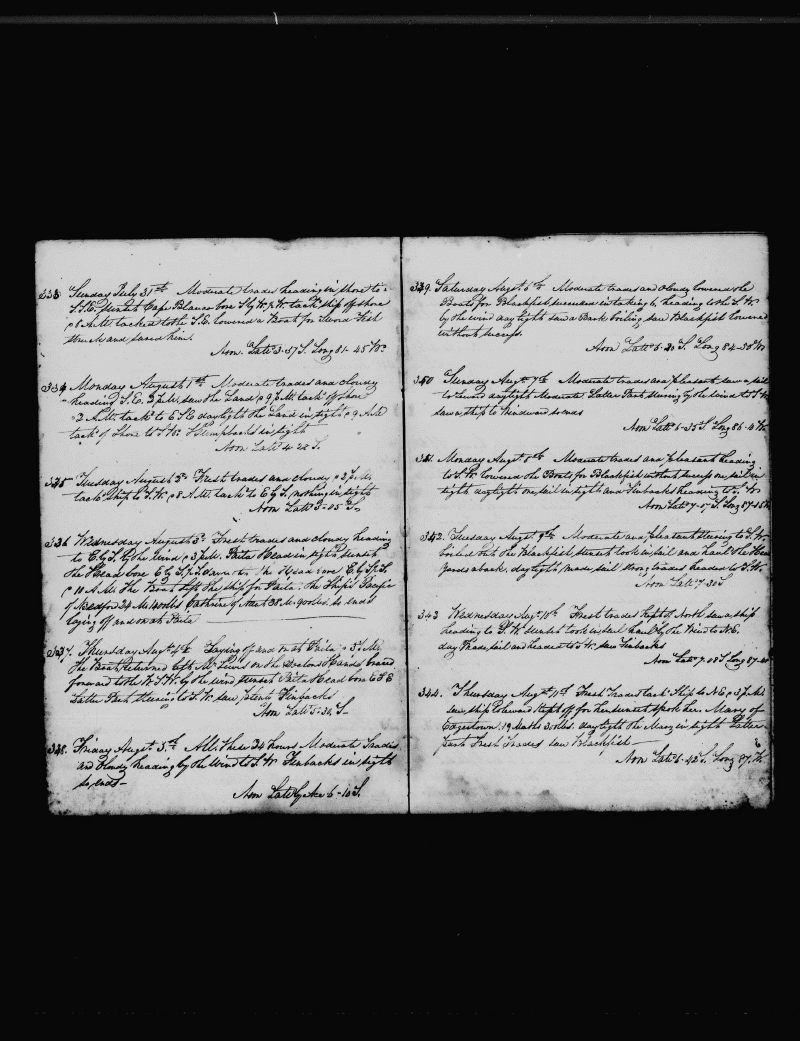 333 Sunday July 31st Moderate trades heading in shore to
S.S.E. Sunset Cape Blanco bore S by W p.M. tack ship off shore
8 A.M. tacked to the S.E. lowered a Boat for Sword Fish
struck and saved him.
Noon Latd 3-57 S. Long 81-45 W.
334 Monday August 1st Moderate trades and cloudy
heading S.E. 2 p.M. saw the Land 9 p.M. tack off shore
2 A.M. tack to E.S.E. daylight the Land in sight 9 A.M.
tack off Shore to S.W. Humpbacks in sight
Noon Latd 4-22 S.
335 Tuesday August 2d Fresh trades and cloudy 3 p.M.
tack Ship to S.W. 8 A.M. tack to E by S. nothing in sight
Noon Latd 5-05 S.
336 Wednesday August 3d Fresh trades and cloudy heading
to E by S. by the wind 3 p.M. Paita Head in sight sunset
the Head bore E by S. the Head bore E by S.
10 A.M. the Boat left the ship for Paita. the Ships Pacific
of N Bedford 24 M. 1400 bbls Catherine of Nant 38 M. 900 bbls. so ends
laying off and on at Paita
337. Thursday Augt 4th Laying off and on at Paita 3 p.M.
the Boat returned left Mr Lewis on the braced
forward to the W.S.W. by the wind sunset Paita Head bore E S E
Latter Part steering to S.W. saw plenty Finbacks
Noon Latd 5-31 S.
338. Friday August 5th All these 24 hours Moderate trades
and cloudy heading by the Wind to S.W. Finbacks in sight
so ends
Noon Latd by Acc 6-10 S.
339. Saturday Augt 6th Moderate trades and cloudy lowered the
Boats for Blackfish succeeded in taking 6, heading to the S.W.
by the wind day light saw a Bark boiling saw Blackfish lowered
without success.
Noon Latd 6-20 S. Long 84-38 W
340 Sunday Augt 7th Moderate trades and pleasant saw a sail
to leeward daylight Moderate Latter Part steering by the wind to S.W.
saw a ship to windward so ends
Noon Latd 6-35 S Long 86-0 W.
341. Monday Augt 8th Moderate trades and pleasant heading
to S.W. lowered the Boats for Blackfish without success one sail in
sight daylight one sail in sight and Finbacks heading to S.W
Noon Latd 7-07 S. Long 87-15 W
342. Tuesday Augt 9th Moderate and pleasant steering to S.W.
boiled out the Blackfish, sunset took in sail and hauld the Head
yards aback, daylight made sail strong trades headed to S.W.
Noon Latd 7-30 S
343 Wednesday Augt 10th Fresh trades kept off North saw a ship
heading to S.W. sunset took in sail hauld by the Wind to N.E.
day Made sail and headed to S.W. saw Finbacks
Noon Latd 7-08 S Long 87-20
344. Thursday Augt 11th Fresh trades tack Ship to N.E. 3 p.M.
saw ship to leeward kept off for her sunset spoke her. Mary of
Edgartown. 19 Months 300 bbls. daylight the Mary in sight Latter
part Fresh trades saw Blackfish
Noon Latd 6-42 S. Long 87. W.